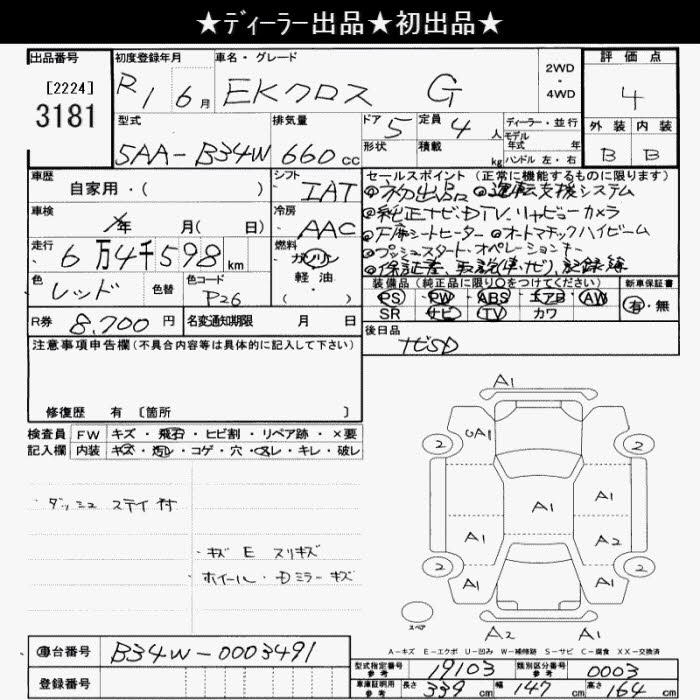 ★ディーラー出品★初出品★
出品番号 初度登録年月 車名・グレード 2WD・4WD 評価点
[2224] 3181 R1 6月 EKクロス G 4
型式 排気量 ドア 5 定員 4人 ディーラー・並行 外装 内装
5AA-B34W 660cc 形状 積載 kg モデル年式 年式 ハンドル 左・右 B B
車歴 自家用・( ) シフト IAT セールスポイント (正常に機能するものに限ります)
◎初出品 ◎運転支援システム
車検 年 月( 日) 冷房 AAC ◎純正ナビ・DTV、リヤビューカメラ
◎前席シートヒーター ◎オートマチックハイビーム
走行 6万4千598km 燃料 ガソリン 軽・油 ( )
◎プッシュスタート・オペレーションキー
◎保証書、取説(車・ナビ)、記録簿
色 レッド 色替 色コード P26
装備品 (純正品に限り○をつけてください) 新車保証書
PS PW ABS エアB AW 有・無
SR ナビ TV カワ
R券 8,700円 名変通知期限 月 日 後日品
ナビSD
注意事項申告欄(不具合内容等は具体的に記入して下さい)
修復歴 有 〔箇所 〕
検査員 FW キズ・飛石・ヒビ割・リペア跡・×要
記入欄 内装 キズ・汚レ・コゲ・穴・スレ・キレ・破レ
ダッシュ ステイ付
キズ E スリキズ
ホイール・Dミラーキズ
A1
2 A1 2
A1 A1
A1 A2
2 A1 A1 2
スペア A2 A1
A-キズ E-エクボ U-凹み W-補修跡 S-サビ C-腐食 XX-交換済
車台番号 B34W-0003491
登録番号
型式指定番号 参考 19103 類別区分番号 参考 0003
車庫証明用 参考 長さ 339cm 幅 147cm 高さ 164cm